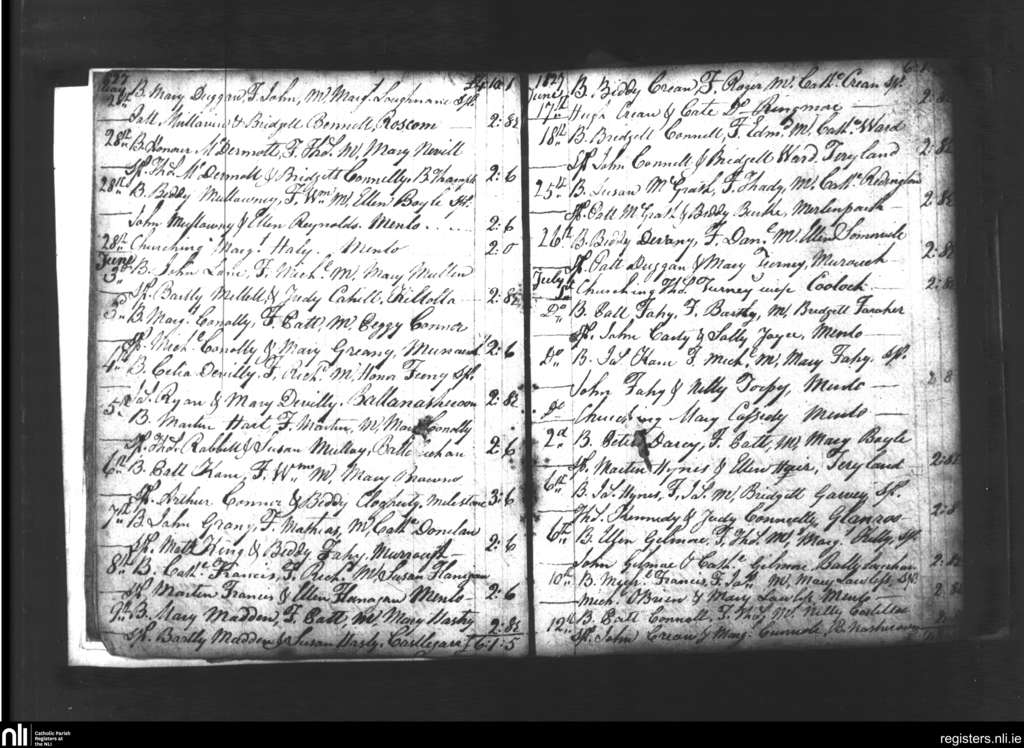 1827 £4 10 1
May 28th B. Mary Duggan, F. John, Mr Margt Loughnane Sp.
Patt Mullavin & Bridgett Bennett, Roscom 2:8½
28th B. Honour McDermott, F. Thos. Mr Mary Nevill
Sp. Thos. McDermott & Bridgett Connelly, 2:6
28th B. Biddy Mullowney, F. Wm Mr Ellen Boyle Sp.
John Mullowny & Ellen Reynolds. Menlo 2:6
28th Churching Margt Haly. Menlo 2:0
June
3d B. John Lane, F. Michl Mr Mary Mullin
Sp. Bartly Mellett & Judy Cahill, Killtolla 2:8½
3d B. Marg. Conolly, F. Patt, Mr Peggy Connor
Sp. Michl Conolly & Mary Greany, 2:6
4th B. Celia Devilly, F. Richd Mr Honor Feeny Sp.
Js. Ryan & Mary Devilly. 2:8½
5th B. Martin Hart, F. Martin, Mr Mary Conolly
Sp. Thos. Rabbitt & Susan Mulloy, 2:6
6th B. Patt Kane, F. Wm Mr Mary Browne
Sp. Arthur Connor & Biddy Clogherty, Milestone 3:6
7th B. John Grany, F. Mathias, Mr Cathe Donelan
Sp. Matt King & Biddy Fahy, Murrough 2:6
8th B. Cathe Francis, F. Richd Mr Susan Flanigan
Sp. Martin Francis & Ellen Flanagan Menlo 2:6
9th B. Mary Madden, F. Patt, Mr Mary Hasty 2:8½
Sp. Bartly Madden & Susan Hasty, Castlegar £6:1:5
1827 6:1
June B. Biddy Crean, F. Roger Mr Cathe Crean Sp.
17th Hugh Crean & Cate Do Ringmore 2:8½
18th B. Bridgett Connell, F. Edmd Mr Cathe Ward
Sp. John Connell & Bridgett Ward, Teryland 2:8½
25th B. Susan McGrath, F. Thady, Mr Cathe Redington
Sp. Patt McGrath & Biddy Burke, Merlinpark 2:8½
26th B. Biddy Dervany, F. Danl Mr Ellen
Sp. Patt Duggan & Mary Tierney, Murrough 2:8½
July
1st Churching Thos. Turney wife Coolock 2:8½
Do B. Patt Fahy, F. Bartly, Mr Bridgett Faraher
Sp. John Casty & Sally Joyce, Menlo
Do B. Js. Kane F. Michl Mr Mary Fahy. Sp.
John Fahy & Nelly Torpy, Menlo 2 8
Do Churching Mary Cassedy Menlo
2d B. Peter Darcy, F. Patt, Mr Mary Boyle
Sp. Martin Hynes & Ellen Teryland 2:8½
6th B. Js. Hynes, F. Js. Mr Bridgett Garvey Sp.
Thos. Kennedy & Judy Connelly, Glanroo 2:8
6th B. Ellen Gilmore, F. Thos. Mr Marg. Sp.
John Gilmore & Cathe Gilmore, 2:8½
10th B. Michl Francis, F. Mr Mary Lawless Sp.
Michl OBrien & Mary Lawless Menlo 2 8½
12th B. Patt Connolly, F. Mr Nelly
Sp. John Crean & Marg.
nli
Catholic Parish
Registers at
the NLI
registers.nli.ie